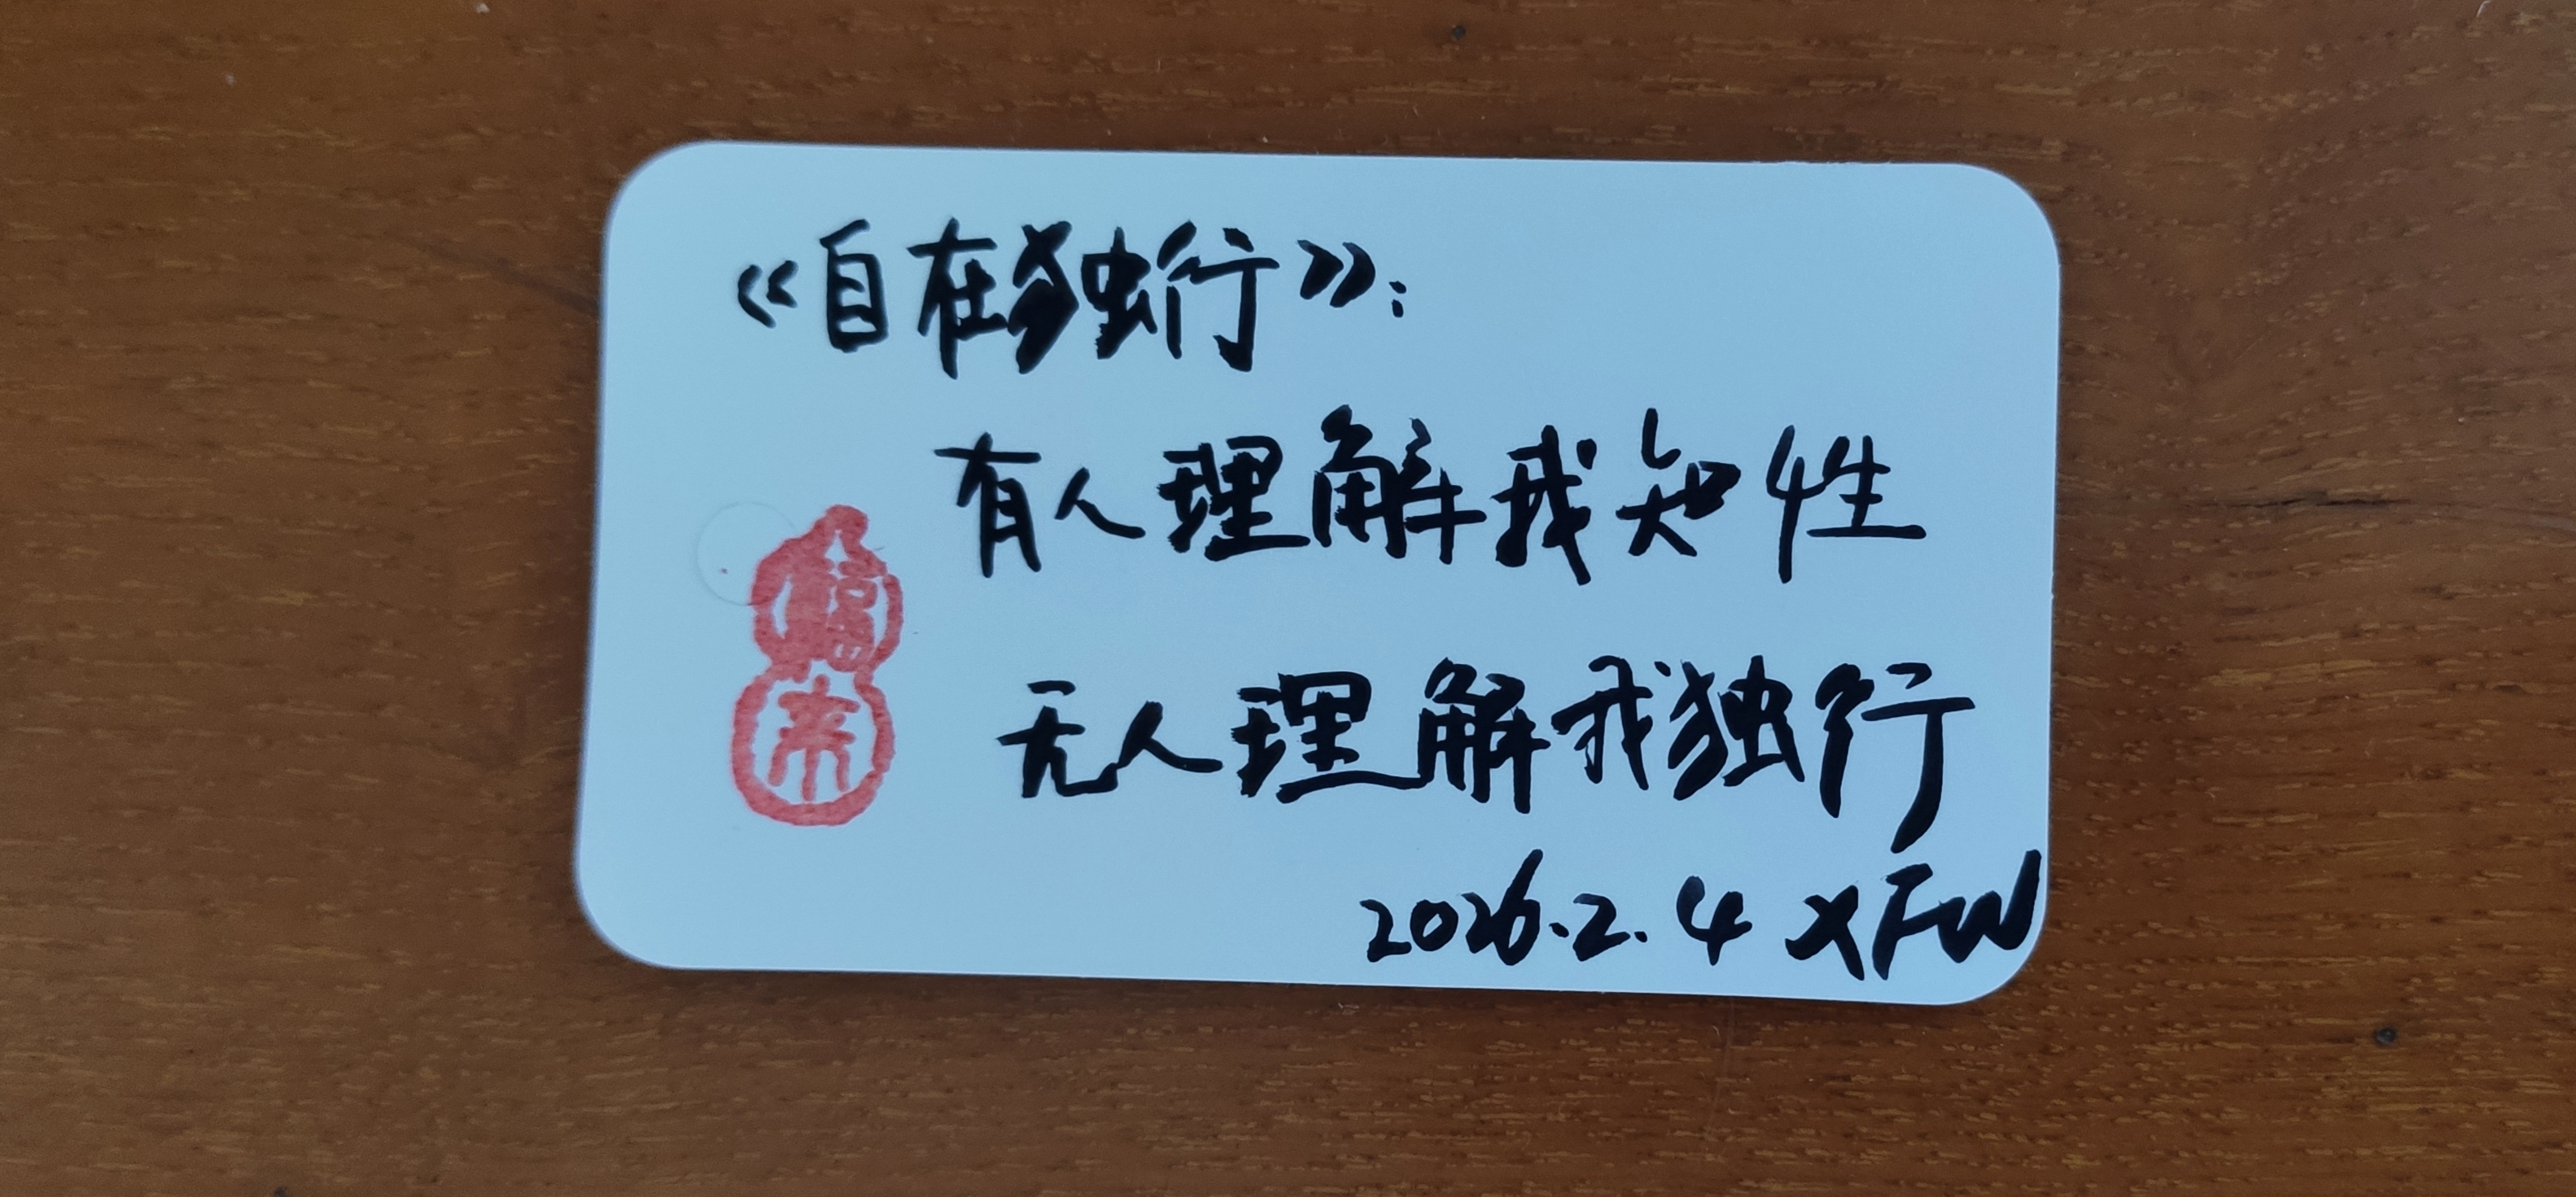 《自在独行》:
有人理解我知性
无人理解我独行
2026.2.4 XFW
福
来